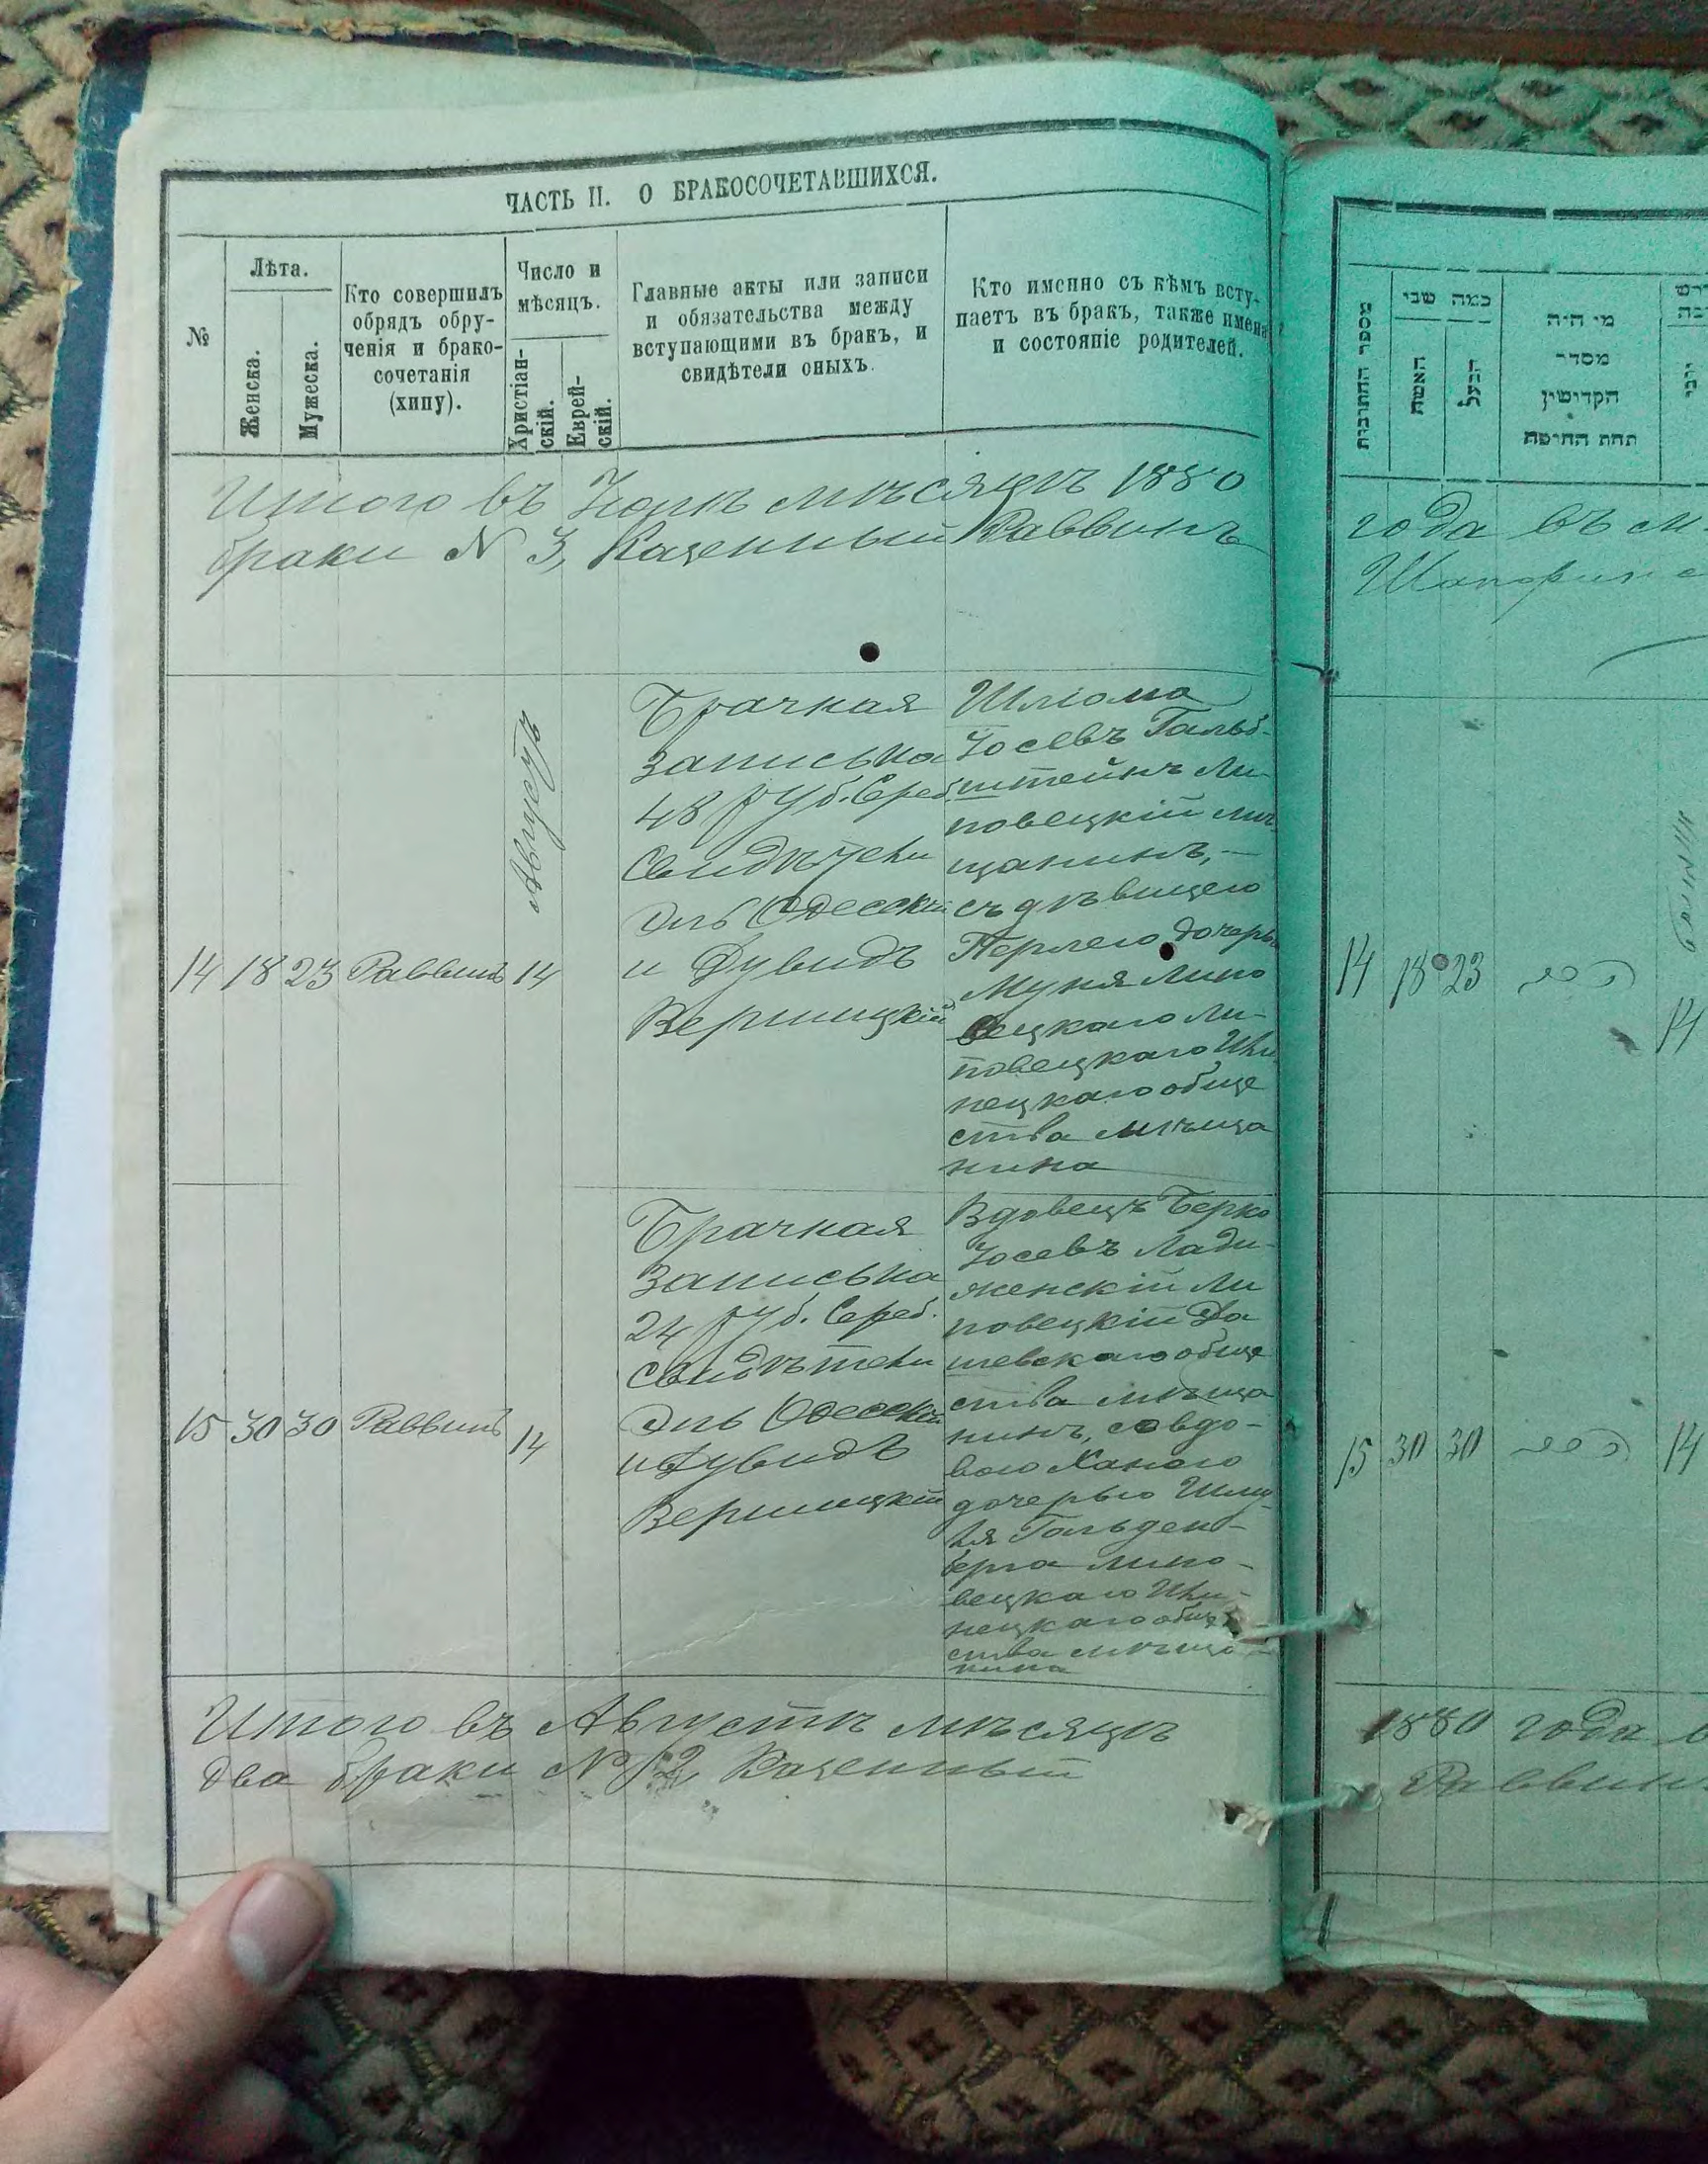 ЧАСТЬ II. О БРАКОСОЧЕТАВШИХСЯ.
№
Лѣта.
Женска.
Мужеска.
Кто совершилъ
обрядъ обру-
ченія и брако-
сочетанія
(хипу).
Число и
мѣсяцъ.
Христіан-
скій.
Еврей-
скій.
Главные акты или записи
и обязательства между
вступающими въ бракъ, и
свидѣтели оныхъ.
Кто именно съ кѣмъ всту-
паетъ въ бракъ, также имена
и состояніе родителей.
Итого въ мѣсяцѣ 1880
браки N 3, Казенный Раввинъ
Августъ
14 18 23 Раввинъ 14
Брачная
запись на
48 руб. Сереб
Свидѣтели
Одесскій
и Дувидъ
Вершицкій
Шліома
Іосевъ Гальб-
штейнъ Ли-
повецкій мѣ
щанинъ, —
съ дѣвицею
Перлею дочерью
Муня Липо
вецкаго Ли-
повецкаго Иль
нецкаго обще
ства мѣща
нина
15 30 30 Раввинъ 14
Брачная
запись на
24 руб. Сереб.
свидѣтели
Одесскій
и Дувидъ
Вершицкій
Вдовецъ Берко
Іосевъ Лади-
женскій Ли
повецкій Да
шевскаго обще
ства мѣща
нинъ, со вдо-
вою Ханою
дочерью
Гольден-
берга Липо-
вецкаго Иль-
нецкаго обще
ства мѣща
нина
Итого въ Августѣ мѣсяцѣ
два браки N 2, Казенный
מספר החתונות
כמה שני
האשה
הבעל
מי היה
מסדר
הקדושין
תחת החופה
года въ м
14 18 23
14
15 30 30
14
1880 года
Раввин